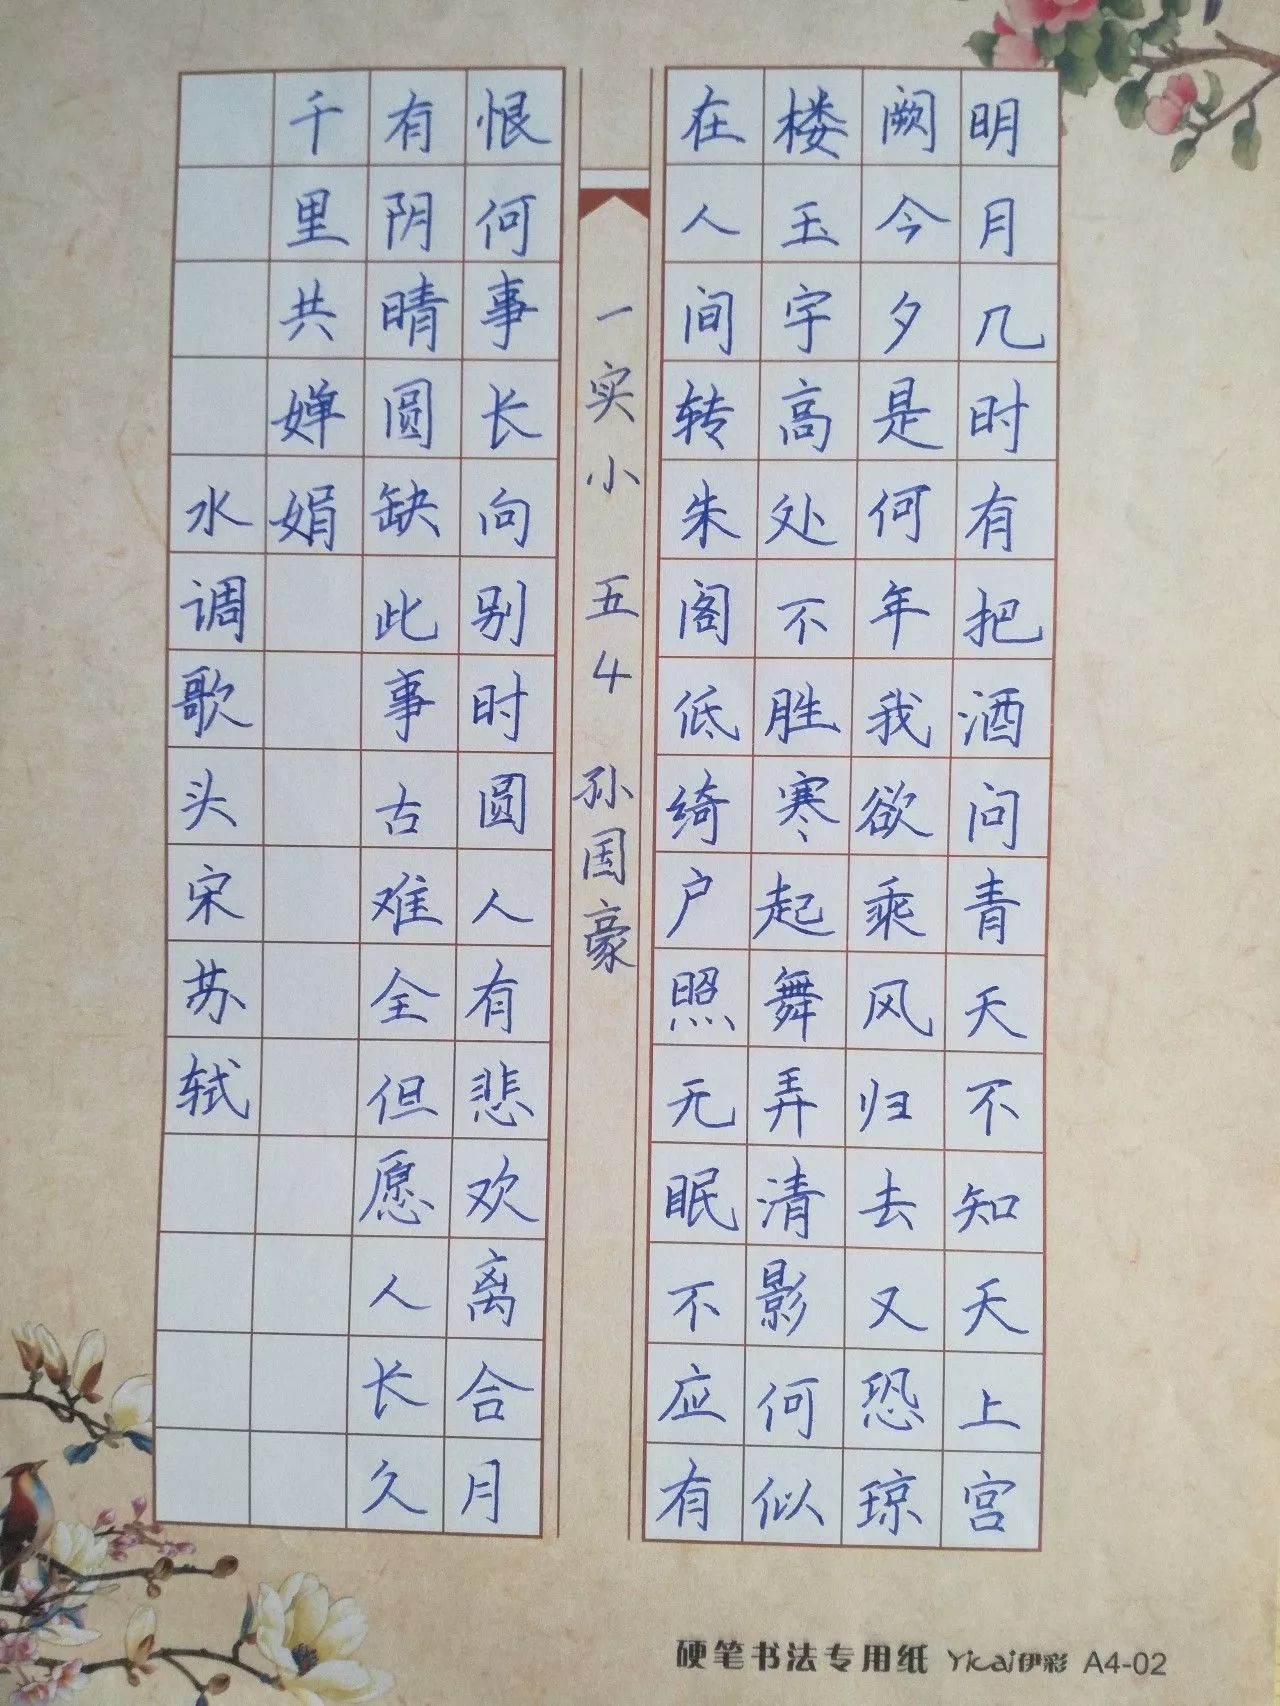 明月几时有把酒问青天不知天上宫
阙今夕是何年我欲乘风归去又恐琼
楼玉宇高处不胜寒起舞弄清影何似
在人间转朱阁低绮户照无眠不应有
一实小 五4 孙国豪
恨何事长向别时圆人有悲欢离合月
有阴晴圆缺此事古难全但愿人长久
千里共婵娟
水调歌头宋苏轼
硬笔书法专用纸 Yicai伊彩 A4-02